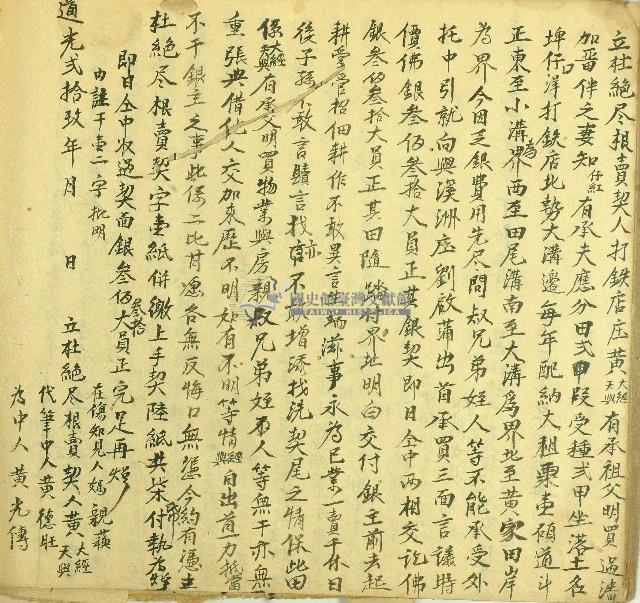 立杜絕尽根賣契人打鉄店庄黃大經天與有承祖父明買過潘
加晋伴之妻知仔紅有承夫應分田弍甲段受種弍甲坐落土名
埤仔口洋打鉄店北勢大溝邊每年配納大租粟壹碩道斗
正東至小溝為界西至田尾溝南至大溝為界北至黃家田岸
為界今因乏銀費用先尽問叔兄弟姪人等不能承受外
托中引就向與溪洲庄劉啟蒲出首承買三面言議時
價佛銀叁佰叁拾大員正其銀契即日仝中兩相交訖佛
銀叁佰叁拾大員正其田隨踏付界址明白交付銀主前去起
耕掌管招佃耕作不敢異言生端滋事永為己業一賣千休日
後子孫不敢言贖言找亦不敢增添找洗契尾之情保此田
係大經天與有承父明買物業與房親叔兄弟姪不人等無干亦無
重張典借他人交加來歷不明如有不明等情經與自出首一力抵當
不干銀主之事此係二比甘愿各無反悔口無憑今約有憑立
杜絕尽根賣契字壹紙併繳上手契陸紙共柒紙付執為炤
即日仝中收過契面銀叁佰叁拾大員正完足再炤
內註千壹二字批明
道光弍拾玖年 月 日
在塲知見人嬸親蘋
立杜絕尽根賣契人黃大經天與
代筆中人黃德旺
為中人黃光傳
國史館臺灣文獻館
TAIWAN HISTORICA